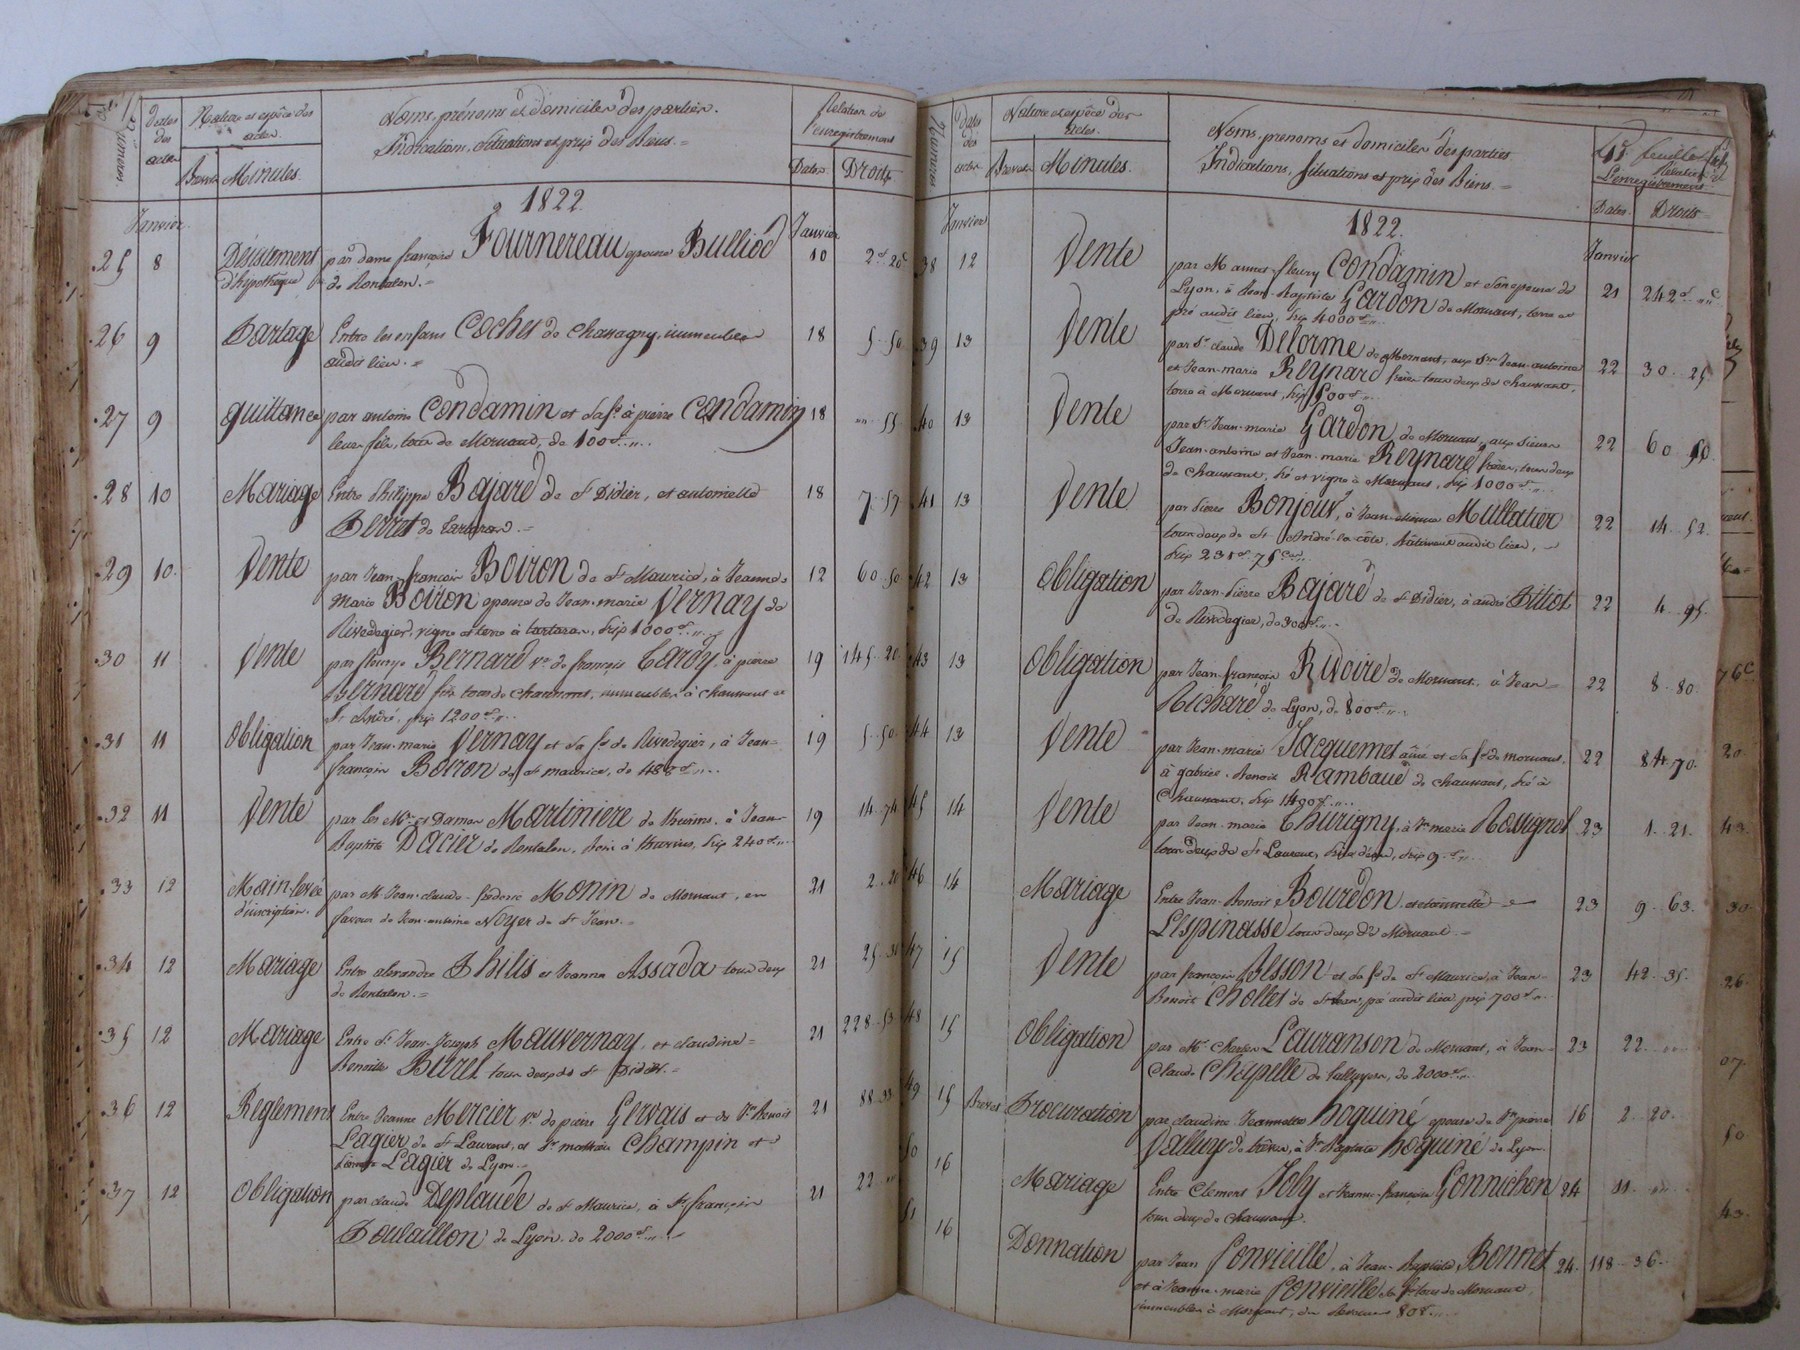 Numéros
Dates des actes
Nature et espèce des actes.
Brevets Minutes.
Noms, prénoms et domiciles des parties.
Indications, situations et prix des Biens.=
Relation de l'enregistrement
Dates. Droits
1822.
Janvier. Janvier
.25 8 Désistement par dame françoise Fournereau epouse Bulliod 10 2f 20c
d'hypothèque de Rontalon.=
.26 9 Partage Entre les enfans Cochet de Chassagny, immeubles 18 5..50
audit lieu.=
.27 9 quittance par antoine Condamin et sa fe à pierre Condamin 18 .. 55
leur fils, tous de Mornant, de 100f..
.28 10 Mariage Entre Philippe Bajard de St Didier, et antoinette 18 7..57
Berret de tartaras.=
.29 10. Vente par Jean-françois Boiron de St Maurice, à Jeanne- 12 60..50
Marie Boiron epouse de Jean-marie Vernay de
Rivedegier, vigne et terre à tartaras, prix 1000f..
.30 11 Vente par fleurye Bernard ve de françois Tardy, à pierre 19 145..20
Bernard fils tous de chaussant, immeubles à chaussant et
St André, prix 1200f..
.31 11 Obligation par Jean-marie Vernay et sa fe de Rivedegier, à Jean- 19 5..50
françois Boiron de St maurice, de 488f..
.32 11 Vente par les Mrs et Dames Martiniere de thurins, à Jean- 19 14..74
Baptiste Dacier de Rontalon, bois à thurins, prix 240f..
.33 12 Main-levée par M Jean-claude-féderic Monin de Mornant, en 21 2..20
d'inscription. faveur de Jean-antoine Noyer de St Jean.=
.34 12 Mariage Entre alexandre Philis et Jeanne Assada tous deux 21 25..30
de Rontalon.=
.35 12 Mariage Entre Sr Jean-Joseph Mauvernay, et claudine= 21 228..53
Benoite Buret tous deux de St Didier.=
.36 12 Reglement Entre Jeanne Mercier ve de pierre Gervais et de Sr Benoit 21 88..33
Lagier de St Laurent, et Sr mathieu Champin et
Lagier de Lyon..
.37 12 Obligation par claude Deplaude de St Maurice, à Sr françois 21 22..
Poulaillon de Lyon, de 2000f..
Numéros
Dates des actes
Nature et espèce des actes.
Brevets Minutes.
Noms, prenoms et domiciles des parties
Indications, situations et prix des Biens.=
feuillet
Relation
L'enregistrement
Dates. Droits=
1822.
Janvier Janvier
38 12 Vente par M annet-fleury Condamin et son epouse de 21 242f..
Lyon, à Jean-Baptiste Gardon de Mornant, terre et
pré audit lieu, prix 4000f..
39 13 Vente par Sr claude Delorme de Mornant, aux Srs Jean-antoine 22 30..25
et Jean-marie Reynard freres tous deux de chaussant,
terre à Mornant, prix 500f..
40 13 Vente par Sr Jean-marie Gardon de Mornant, aux sieurs 22 60..50.
Jean-antoine et Jean-marie Reynard freres, tous deux
de chaussant, pré et vigne à Mornant, prix 1000f..
41 13 Vente par pierre Bonjour, à Jean-etienne Mullatier 22 14..52.
tous deux de St André-la-côte, bâtiment audit lieu,
prix 231f 75c..
42 13 Obligation par Jean-pierre Bajard de St Didier, à andré Piliot 22 4..95.
de Rivedegier, de 300f..
43 13 Obligation par Jean-françois Rivoire de Mornant, à Jean= 22 8..80.
Richard de Lyon, de 800f..
44 13 Vente par Jean-marie Jacquemet aîné et sa fe de mornant, 22 84..70.
à gabriel-Benoit Rambaud de chaussant, pré à
Chaussant, prix 1400f..
45 14 Vente par Jean-marie Thurigny, à Sr marie Rossignol 23 1..21.
tous deux de St Laurent, prix 9f..
46 14 Mariage Entre Jean-Benoit Bourdon et toinette 23 9..63.
Lespinasse tous deux de Mornant.=
47 15 Vente par françois Besson et sa fe de St Maurice, à Jean- 23 42..35.
Benoit Chollet de St Jean, pré audit lieu, prix 700f..
48 15 Obligation par Mr Lauranson de Mornant, à Jean- 23 22..
Claude Chapelle de talluyers, de 2000f..
49 15 Brevet Procuration par claudine Jeannette hoguiné epouse de Sr pierre 16 2..20.
Valluy de à Sr Baptiste hoguiné de Lyon.
50 16 Mariage Entre Clement Joly et Jeanne-françoise Gonnichon 24 11..
tous deux de chaussant.
51 16 Donnation par Jean Convieille, à Jean-Baptiste Bonnet 24. 118..36..
et à Jeanne-marie Convieille sa fe tous de Mornant,
immeubles à Mornant, du revenu 80f..
76c
20.
43.
30.
26.
07.
50
43.